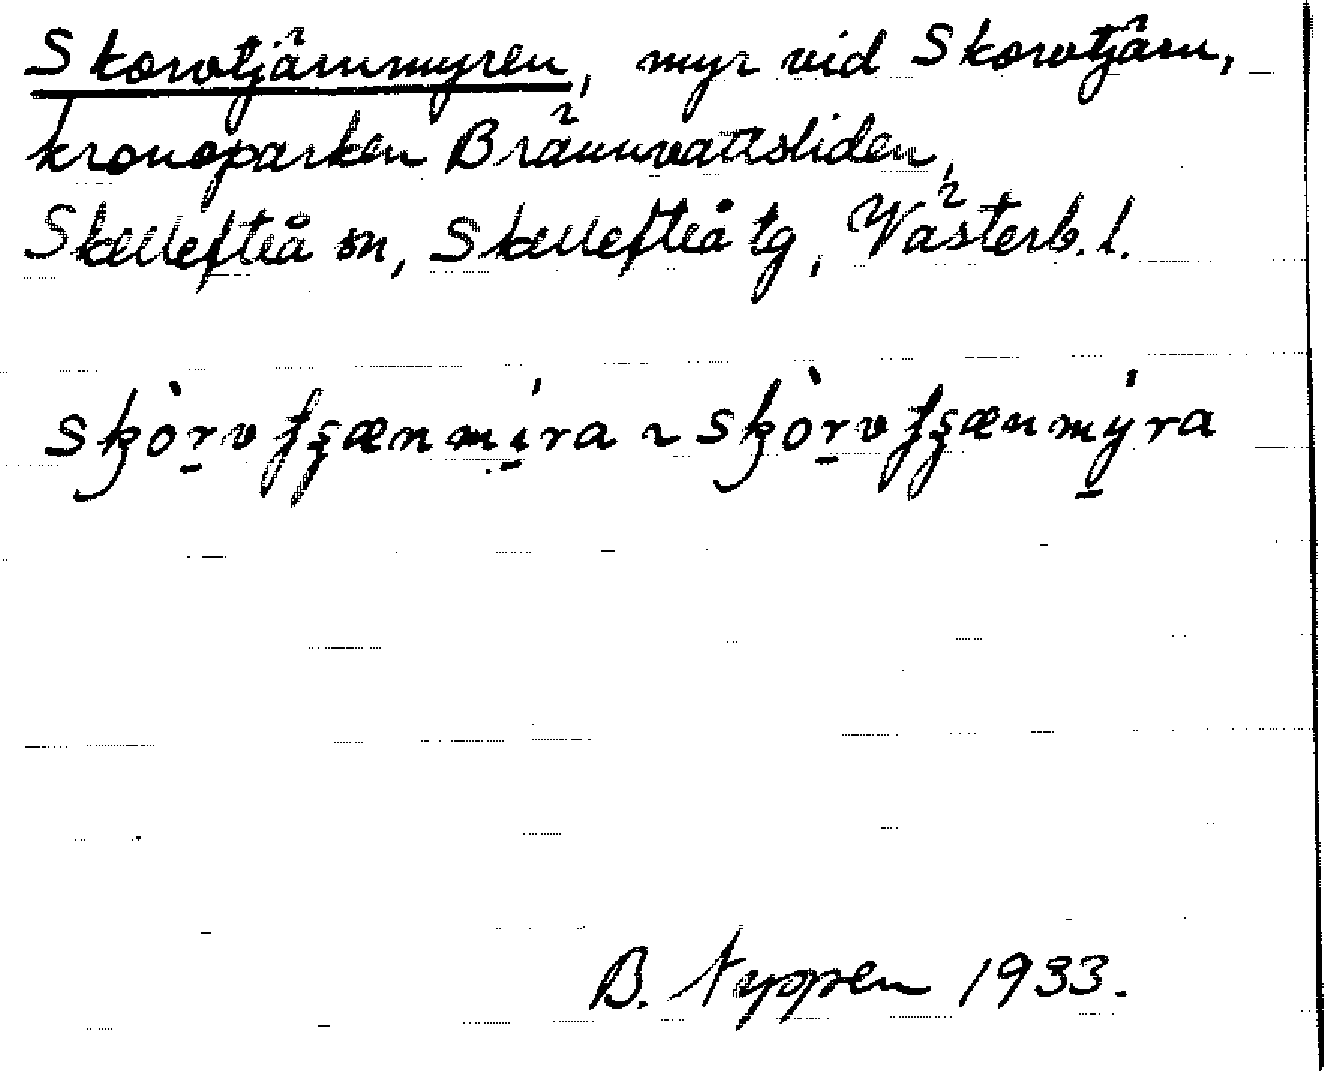 Skorvtjärnmyren, myr vid Skorvtjärn,
kronoparken Brännvattsliden,
Skellefteå sn, Skellefteå tg, Västerb. l.
B. 1933.